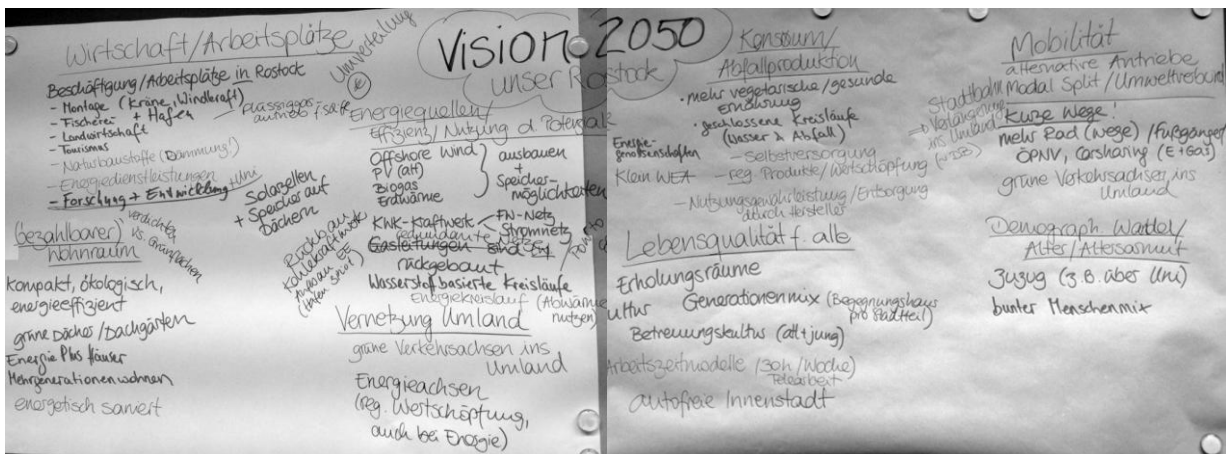 Vision 2050
unser Rostock
Wirtschaft/Arbeitsplätze
Umverteilung
Beschäftigung/Arbeitsplätze in Rostock
- Montage (Kräne, Windkraft)
- Fischerei + Hafen
- Landwirtschaft
- Tourismus
- Naturbaustoffe (Dämmung!)
- Energiedienstleistungen
- Forschung + Entwicklung + Uni
Solarzellen
+ Speicher auf
Dächern
(bezahlbarer)
Wohnraum
verdichten
vs. Grünflächen
kompakt, ökologisch,
energieeffizient
grüne Dächer/Dachgärten
Energie Plus Häuser
Mehrgenerationenwohnen
energetisch saniert
Energiequellen/
Effizienz/Nutzung d. Potenziale
Offshore Wind
PV (alt)
Biogas
Erdwärme
ausbauen
+
Speicher-
möglichkeiten
KWK-Kraftwerk
FW-Netz
Stromnetz
redundante Netze
Gasleitungen sind
rückgebaut
Wasserstoff basierte Kreisläufe
Energiekreislauf (Abwärme
nutzen)
Rückbau
Kohlekraftwerk
Ausbau EE
Vernetzung Umland
grüne Verkehrsachsen ins
Umland
Energieachsen
(reg. Wertschöpfung,
auch bei Energie)
Konsum/
Abfallproduktion
• mehr vegetarische/gesunde
Ernährung
• geschlossene Kreisläufe
(Wasser & Abfall)
Energie-
genossenschaften
Klein WEA
- Selbstversorgung
- reg. Produkte/Wertschöpfung
- Nutzungsgewährleistung/Entsorgung
durch Hersteller
Lebensqualität f. alle
Erholungsräume
ultur
Generationenmix (Begegnungshaus
pro Stadtteil)
Betreuungskultur (alt+jung)
Arbeitszeitmodelle (30h/Woche)
Telearbeit
autofreie Innenstadt
Mobilität
alternative Antriebe
Modal Split/Umweltverbund
Stadtbahn
Verlängerung
ins Umland
Kurze Wege!
mehr Rad (wege) /Fußgänger
ÖPNV, Carsharing (E+Gas)
grüne Verkehrsachsen ins
Umland
Demograph. Wandel/
Alter/Altersarmut
Zuzug (z.B. über Uni)
bunter Menschenmix